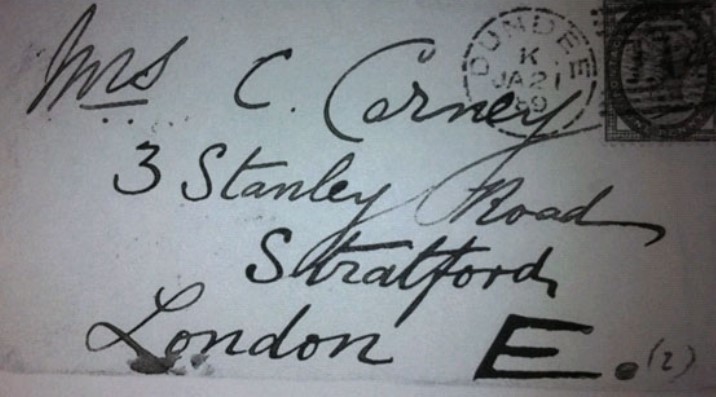 Mrs C. Corney
3 Stanley Road
Stratford,
London E.
(2)
DUNDEE
K
JA 21
89